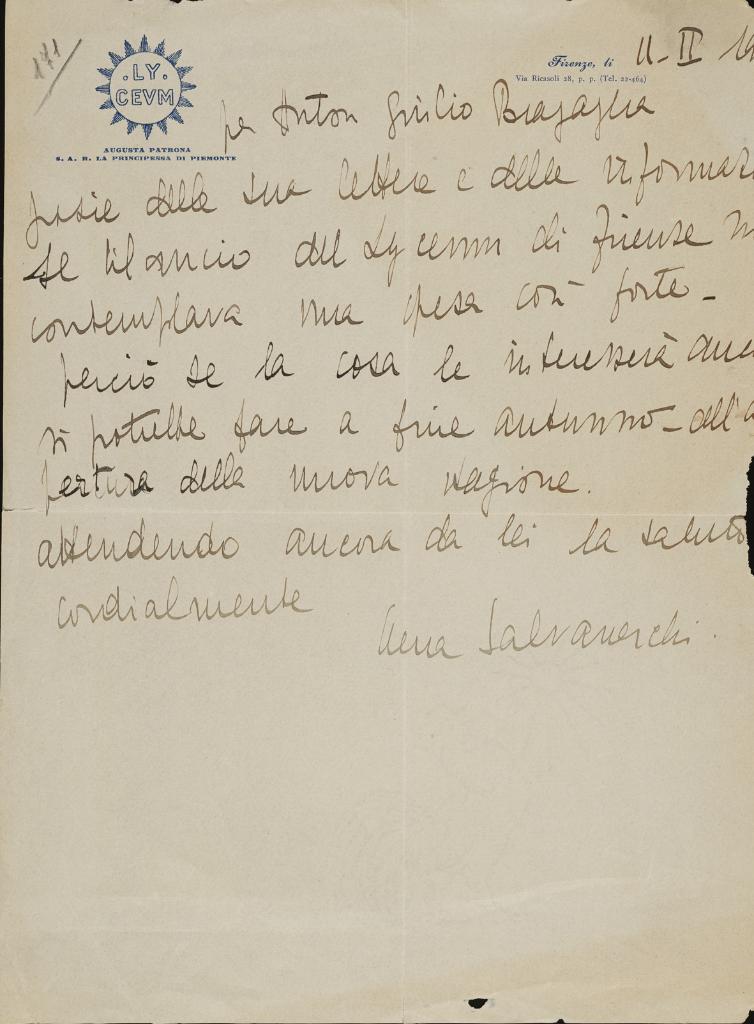 171
.LY.
CEVM
AUGUSTA PATRONA
S. A. R. LA PRINCIPESSA DI PIEMONTE
Firenze, li 11-II
Via Ricasoli 28, p. p. (Tel. 22-464)
per Anton Giulio Bragaglia
grazie della sua lettera e delle informaz
Il bilancio del Lyceum di Firenze
contemplava una spesa così forte -
perciò se la cosa le interesserà anc
si potrebbe fare a fine autunno - dell'a
pertura della nuova stagione.
attendendo ancora da lei la saluto
cordialmente
Salvaneschi.